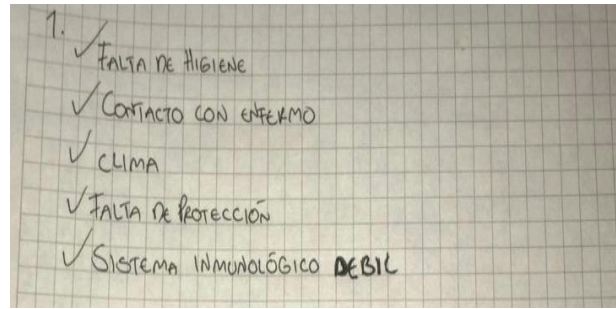 1.
✓ FALTA DE HIGIENE
✓ CONTACTO CON ENFERMO
✓ CLIMA
✓ FALTA DE PROTECCIÓN
✓ SISTEMA INMUNOLÓGICO DEBIL